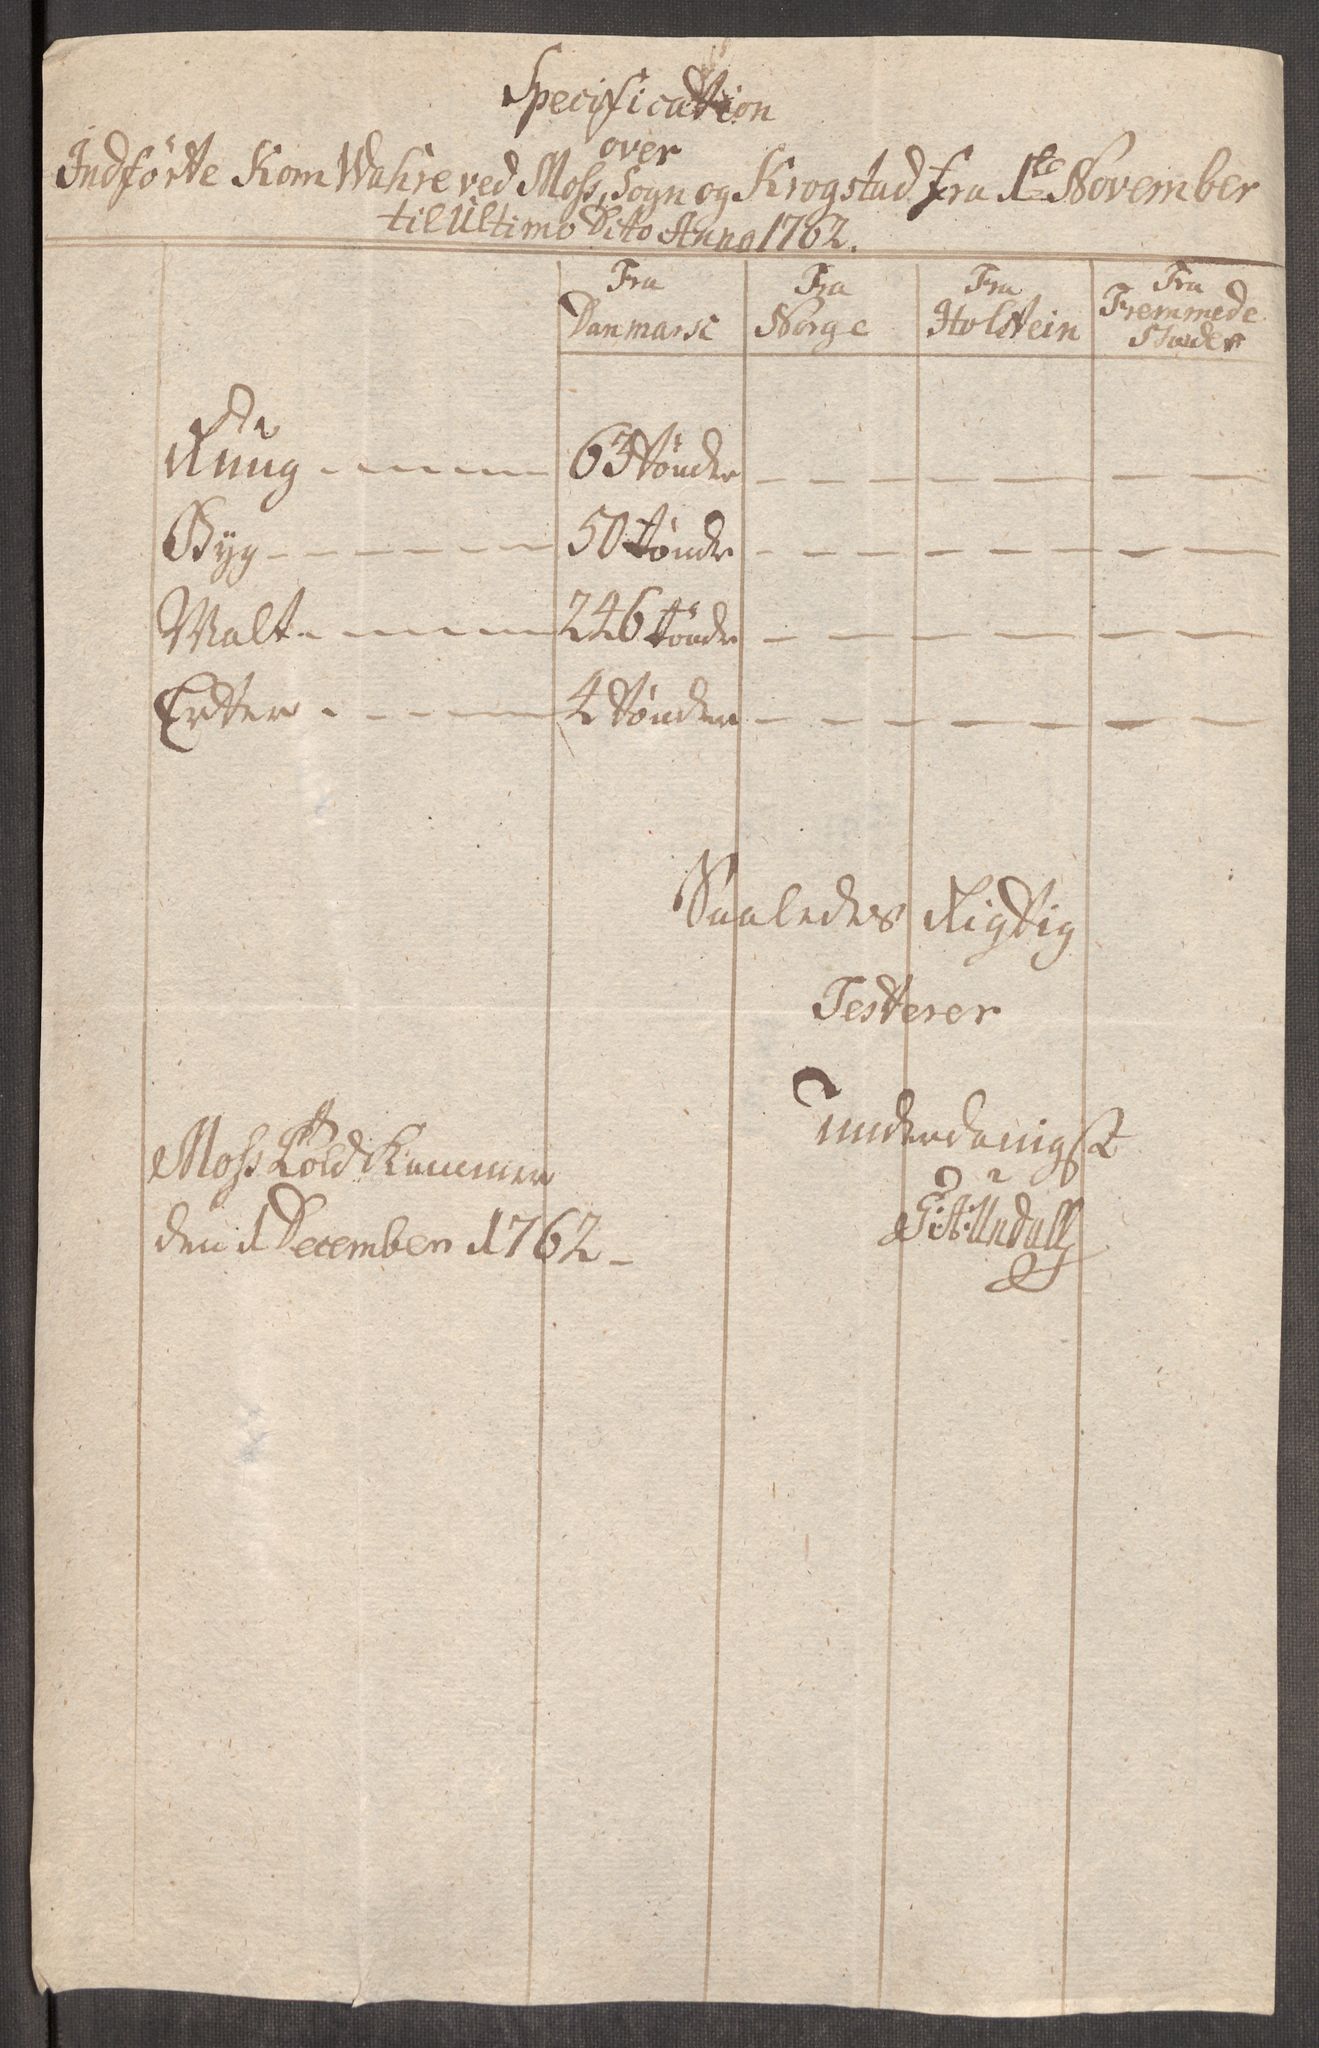 Specification
over
Indførte Korn Wahre ved Moss, Sogn og Krogstad fra 1te November
til Ultimo Dito Anno 1762.
Fra Danmarc Fra Norge Fra Holstein Fra Fremmede Stæder
Rúúg 63 tønder
Byg 50 tønder
Malt 246 tønder
Erter 4 tønder
Saaledes Rigtig
Testerer
underdanigst
Moss Told Kammer
den 1 December 1762